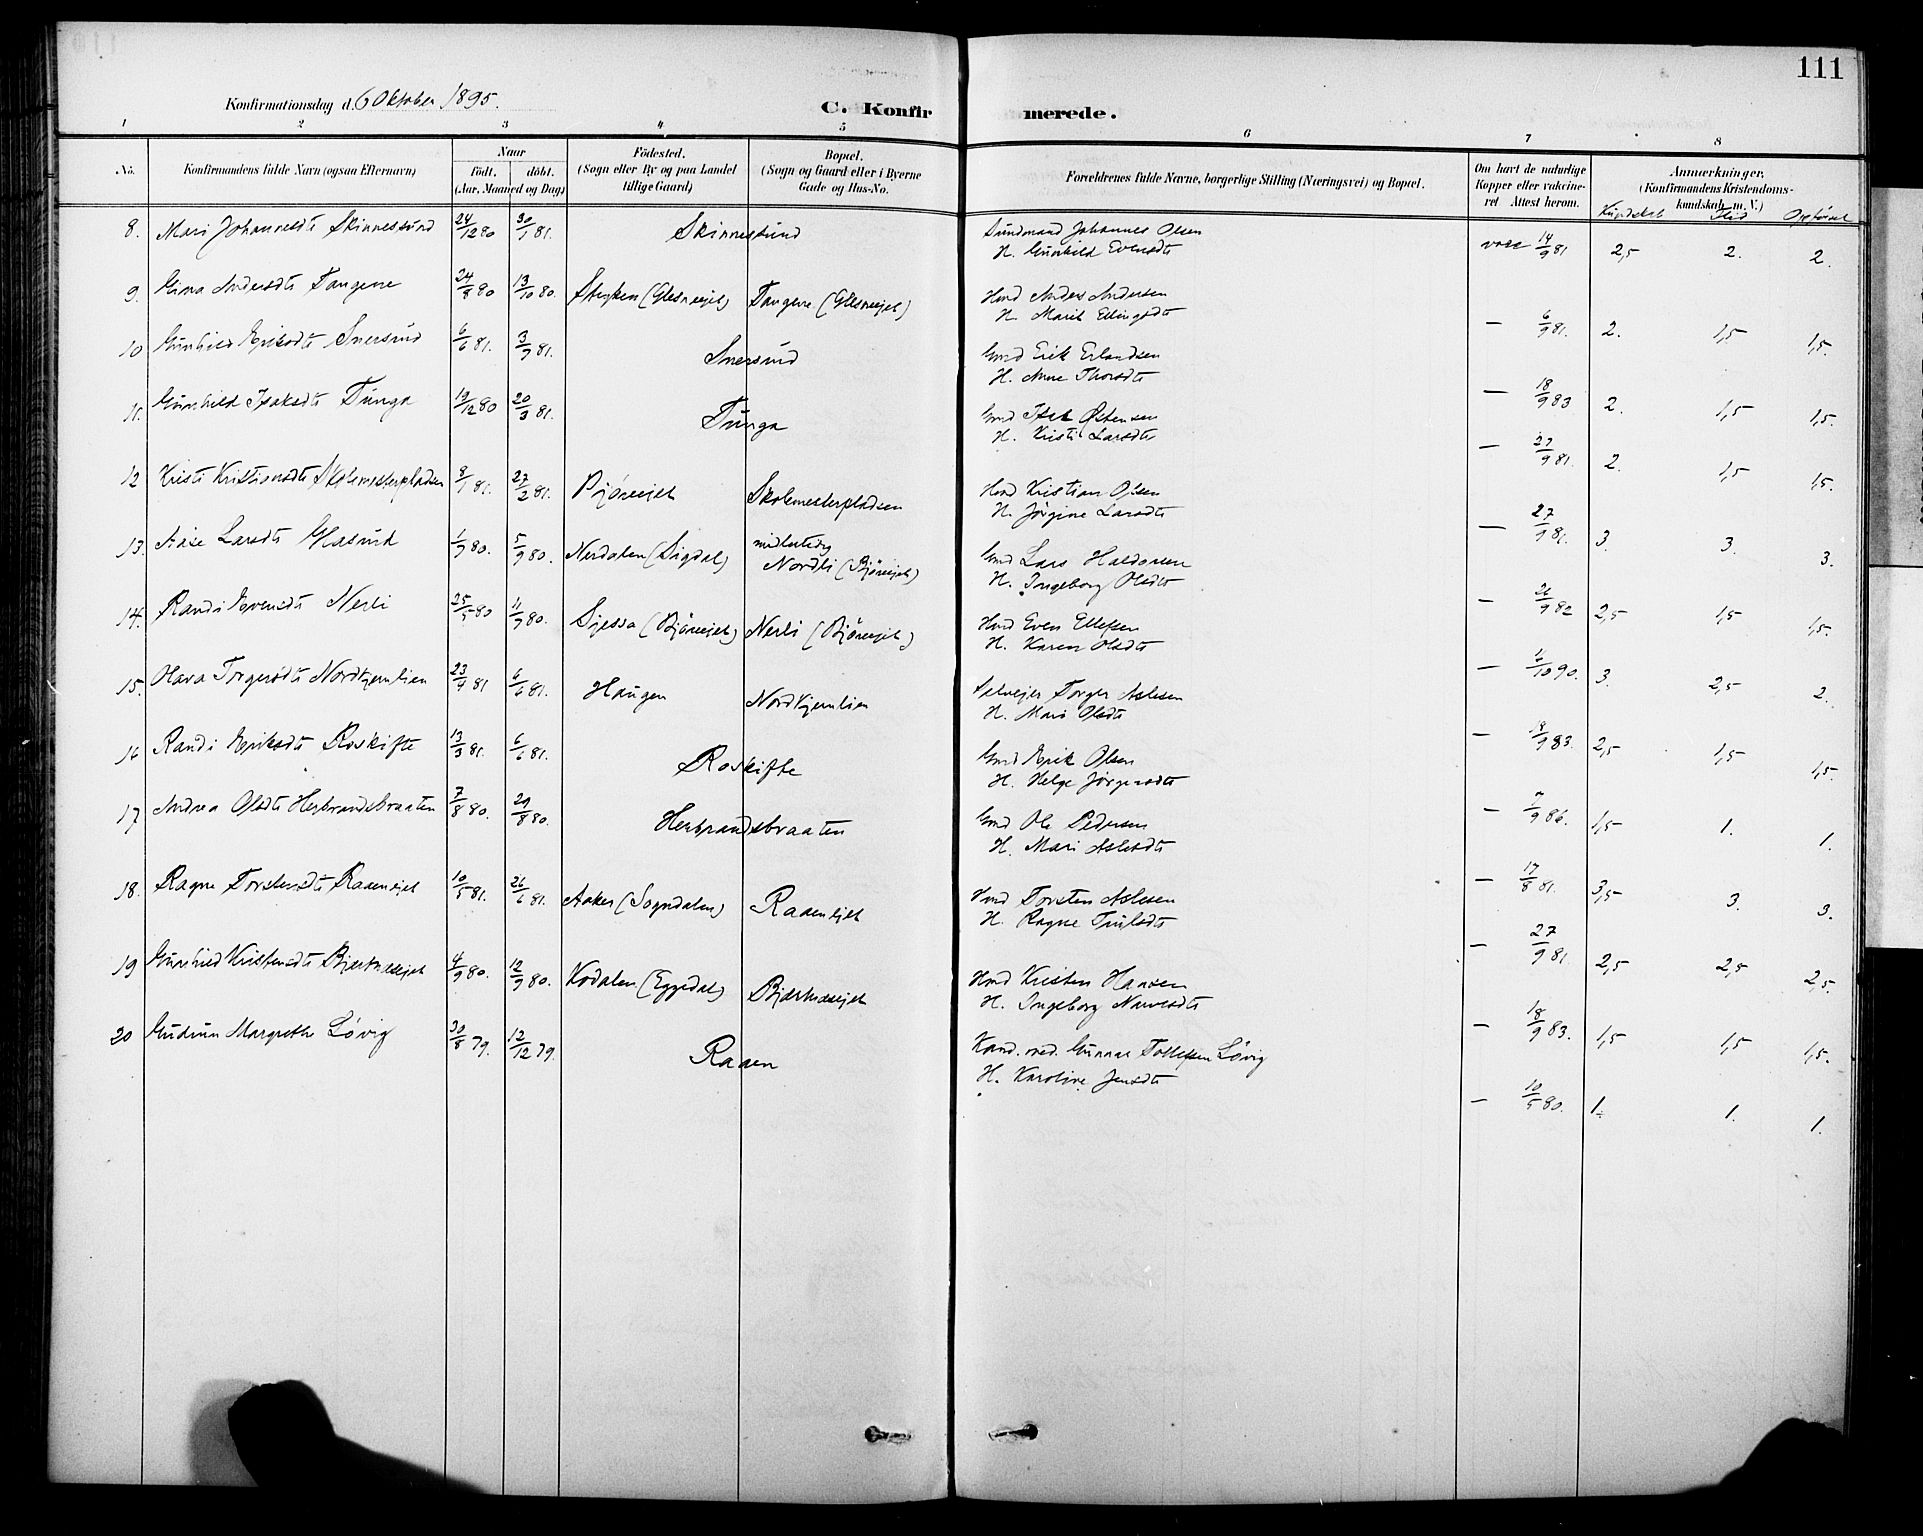 111
Konfirmationsdag d. 6 Oktober 1895.
C. Konfirmerede.
1 2 3 4 5 6 7 8
No. Konfirmandens fulde Navn (ogsaa Efternavn) Naar født. døbt. (Aar, Maaned og Dag) Fødested. (Sogn eller By og paa Landet tillige Gaard) Bopæl. (Sogn og Gaard eller i Byerne Gade og Hus-No. Forældrenes fulde Navne, borgerlige Stilling (Næringsvei) og Bopæl. Om havt de naturlige Kopper eller vakcineret Attest herom. Anmærkninger, (Konfirmandens Kristendomskundskab m. V.)
Kundskab Flid Opførsel
8. Mari Johannesdt Skinnessund 24/12 80 30/1 81. Skinnessund Sundmand Johannes Olsen
H. Gunhild Evensdt vacc 14/9 81 2,5 2. 2.
9. Gina Andersdt Tangene 24/8 80 13/10 80. Stryken (Glesneejet) Tangene (Glesneejet) Hmd Anders Andersen
H. Marit Ellingsdt — 6/9 81. 2. 1,5 1,5.
10 Gunhild Eriksdt Snersund 6/6 81. 3/9 81. Snersund Gmd Erik Erlandsen
H. Anne Thorsdt — 18/9 83 2. 1,5 1,5.
11. Gunhild Isaksdt Tunga 19/12 80 20/3 81. Tunga Gmd Isak Østensen
H. Kristi Larsdt — 27/9 81. 2. 1,5 1,5.
12 Kristi Kristiansdt Skolemesterpladsen 8/1 81. 27/2 81. Bjøreejet Skolemesterpladsen Hmd Kristian Olsen
H. Jørgine Larsdt — 27/9 81. 3. 3. 3.
13. Aase Larsdt Glasund 1/7 80. 5/9 80. Nerdalen (Sigdal) midlertidig
Nordli (Bjøreejet) Gmd Lars Haldorsen
H. Ingeborg Olsdt — 26/9 82 2,5 1,5 1,5.
14. Randi Evensdt Nerli 25/5 80 11/7 80. (Bjøreejet) Nerli (Bjøreejet) Hmd Even Ellefsen
H. Karen Olsdt — 6/10 90. 3. 2,5 2.
15. Torgersdt Nordkjernlien 23/4 81 6/6 81. Haugen Nordkjernlien Selvejer Torger Aslesen
H. Mari Olsdt — 18/9 83. 2,5 1,5 1,5.
16 Randi Eriksdt Roskifte 13/3 81. 6/6 81. Roskifte Gmd Erik Olsen
H. Helge Jørgensdt — 7/9 86. 1,5 1. 1.
17 Andrea Olsdt Herbrandsbraaten 7/8 80. 29/8 80. Herbrandsbraaten Gmd Ole Pedersen
H. Mari Aslesdt — 17/8 81. 3,5 3. 3.
18. Ragne Torstensdt Raaenejet 10/5 81. 26/6 81. Aaker (Sogndalen) Raaenejet Hmd Torsten Aslesen
H. Ragne Trulsdt — 27/9 81. 2,5 2,5 2,5.
19 Gunhild Kristensdt Bjertnæsejet 4/9 80. 12/9 80. Kodalen (Eggedal) Bjertnæsejet Hmd Kristen Hansen
H. Ingeborg Narvesdt — 18/9 83. 1,5 1,5 1,5.
20 Gudrun Margrethe Løvig 30/8 79. 12/12 79. Raaen Kand. med. Gunnar Tollefsen Løvig
H. Karoline Jensdt — 10/5 80. 1. 1. 1.